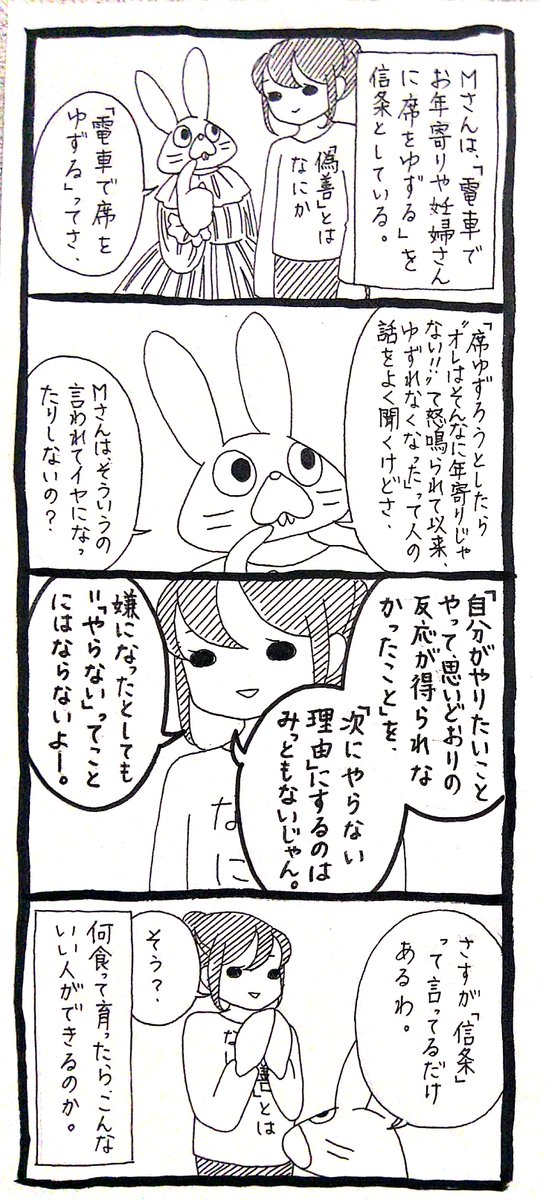 Mさんは、「電車で
お年寄りや妊婦さん
に席をゆずる」を
信条としている。
「偽善」とは
なにか
「電車で席を
ゆずる」ってさ、
「席ゆずろうとしたら
"オレはそんなに年寄りじゃ
ない!!"て怒鳴られて以来、
ゆずれなくなった」って人の
話をよく聞くけどさ、
Mさんは、そういうの
言われてイヤになっ
たりしないの?
「自分がやりたいこと
やって、思いどおりの
反応が得られな
かったこと」を、
「次にやらない
理由」にするのは
みっともないじゃん。
嫌になったとしても
"「やらない」ってこと
にはならないよー。
なに
さすが「信条」
って言ってるだけ
あるわ。
そう?
善」とは
な
何食って育ったら、こんな
いい人ができるのか。